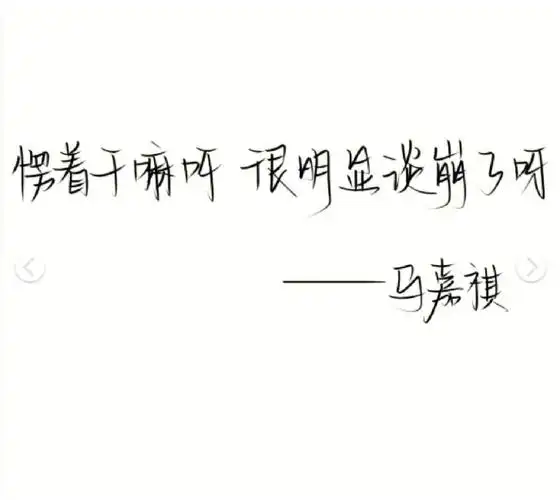 愣着干嘛呀 很明显谈崩了呀
——马嘉祺